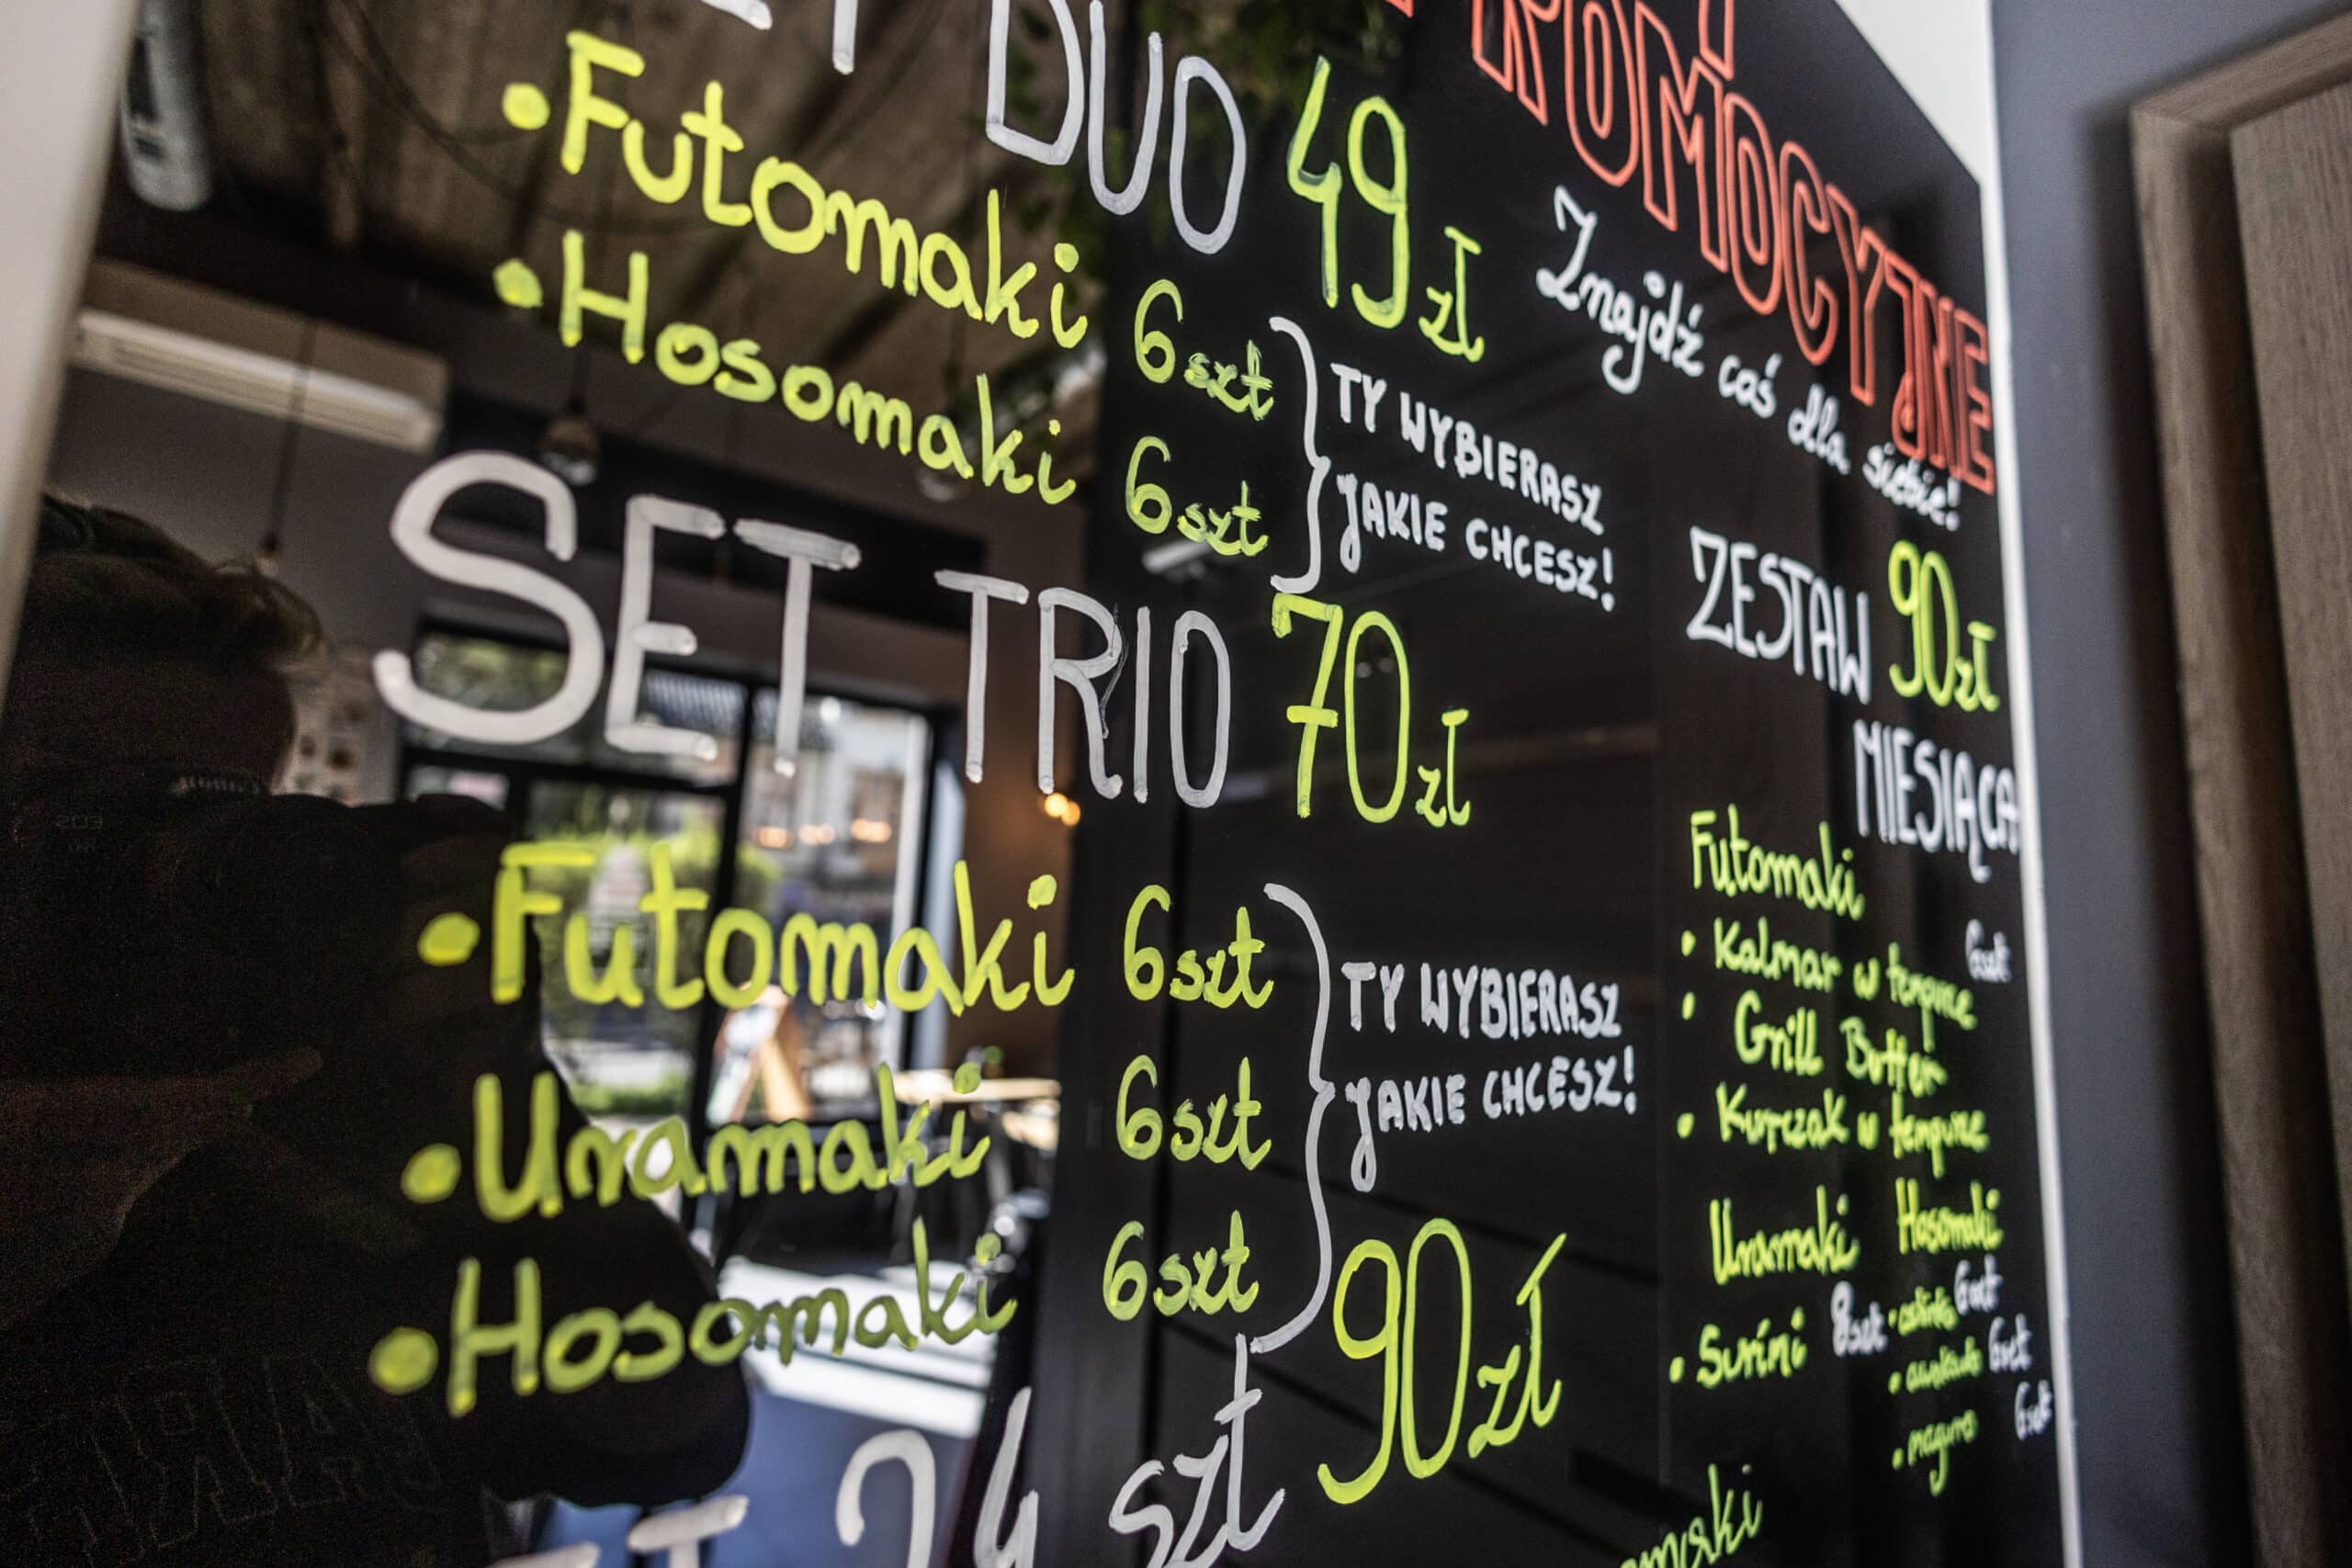 DUO 49zł
• Futomaki 6szt
• Hosomaki 6szt
TY WYBIERASZ
JAKIE CHCESZ!
SET TRIO 70zł
• Futomaki 6szt
• Uramaki 6szt
• Hosomaki 6szt
TY WYBIERASZ
JAKIE CHCESZ!
24 szt 90zł
PROMOCYJNE
Znajdź coś dla siebie!
ZESTAW 90zł
MIESIĄCA
Futomaki
6szt
• Kalmar w tempurze
• Grill Butter
• Kurczak w tempurze
Uramaki
• Surimi 8szt
Hosomaki
6szt
• awokado 6szt
6szt